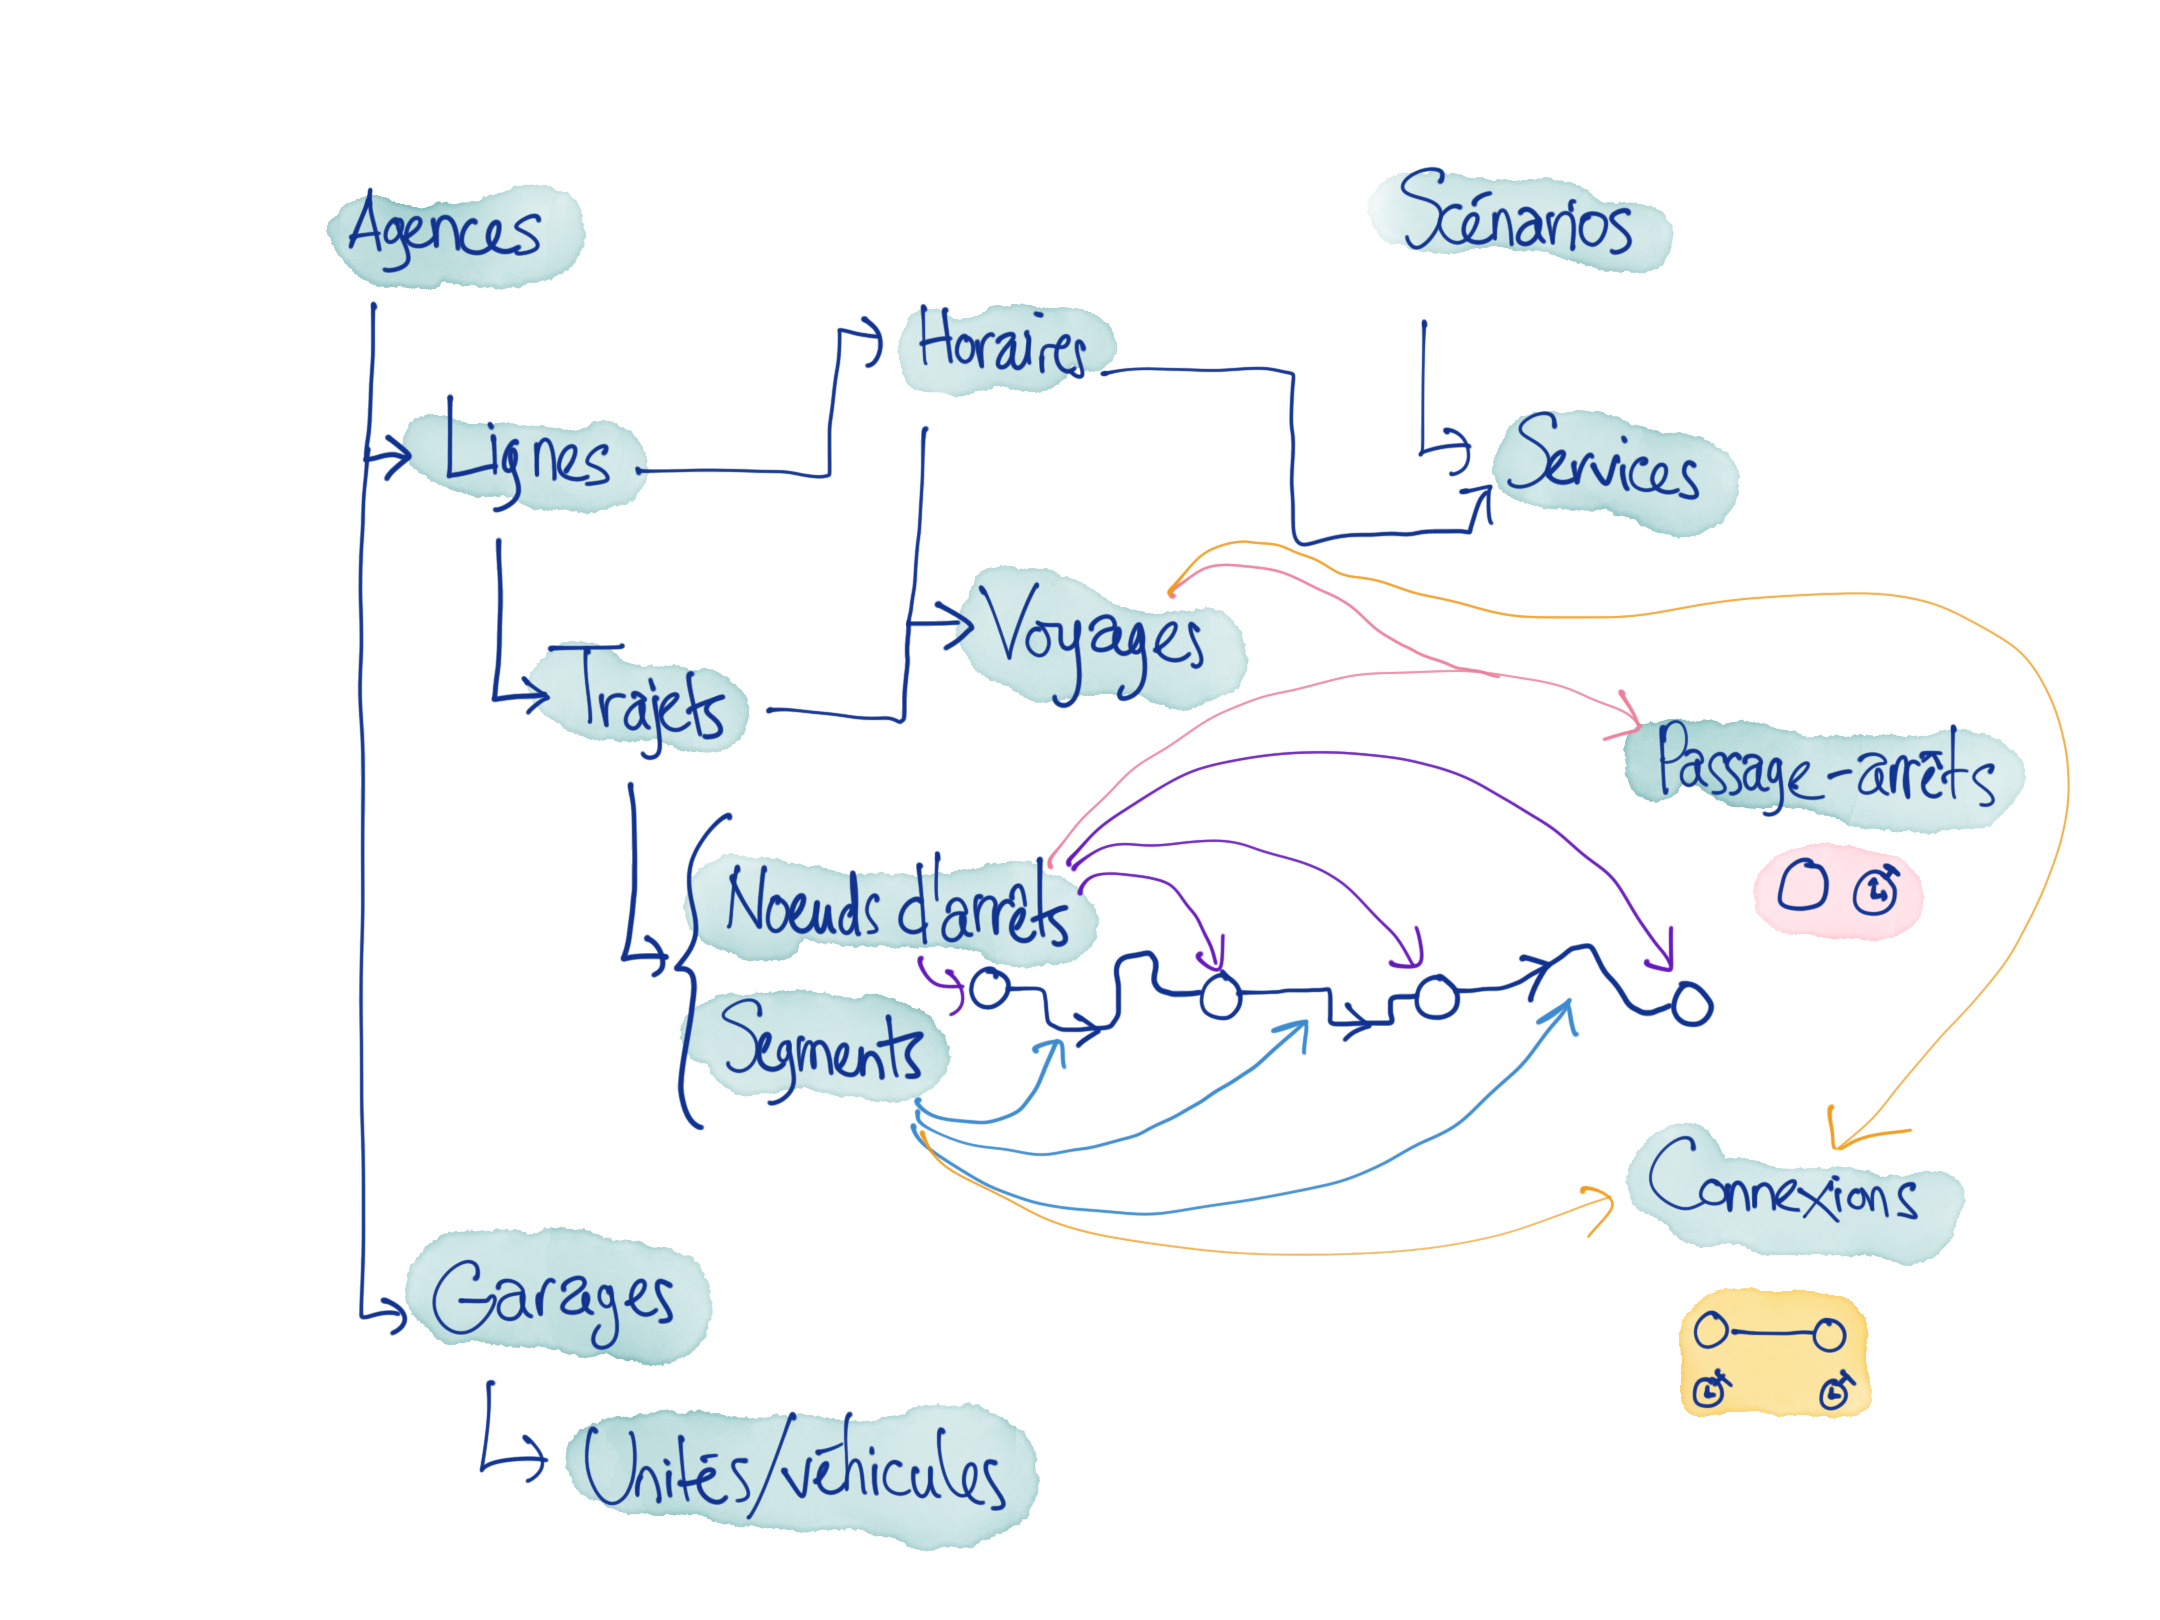 Agences
Scénarios
Horaires
Lignes
Services
Voyages
Trajets
Passage-arrêts
Noeuds d'arrêts
Segments
Connexions
Garages
Unités/véhicules